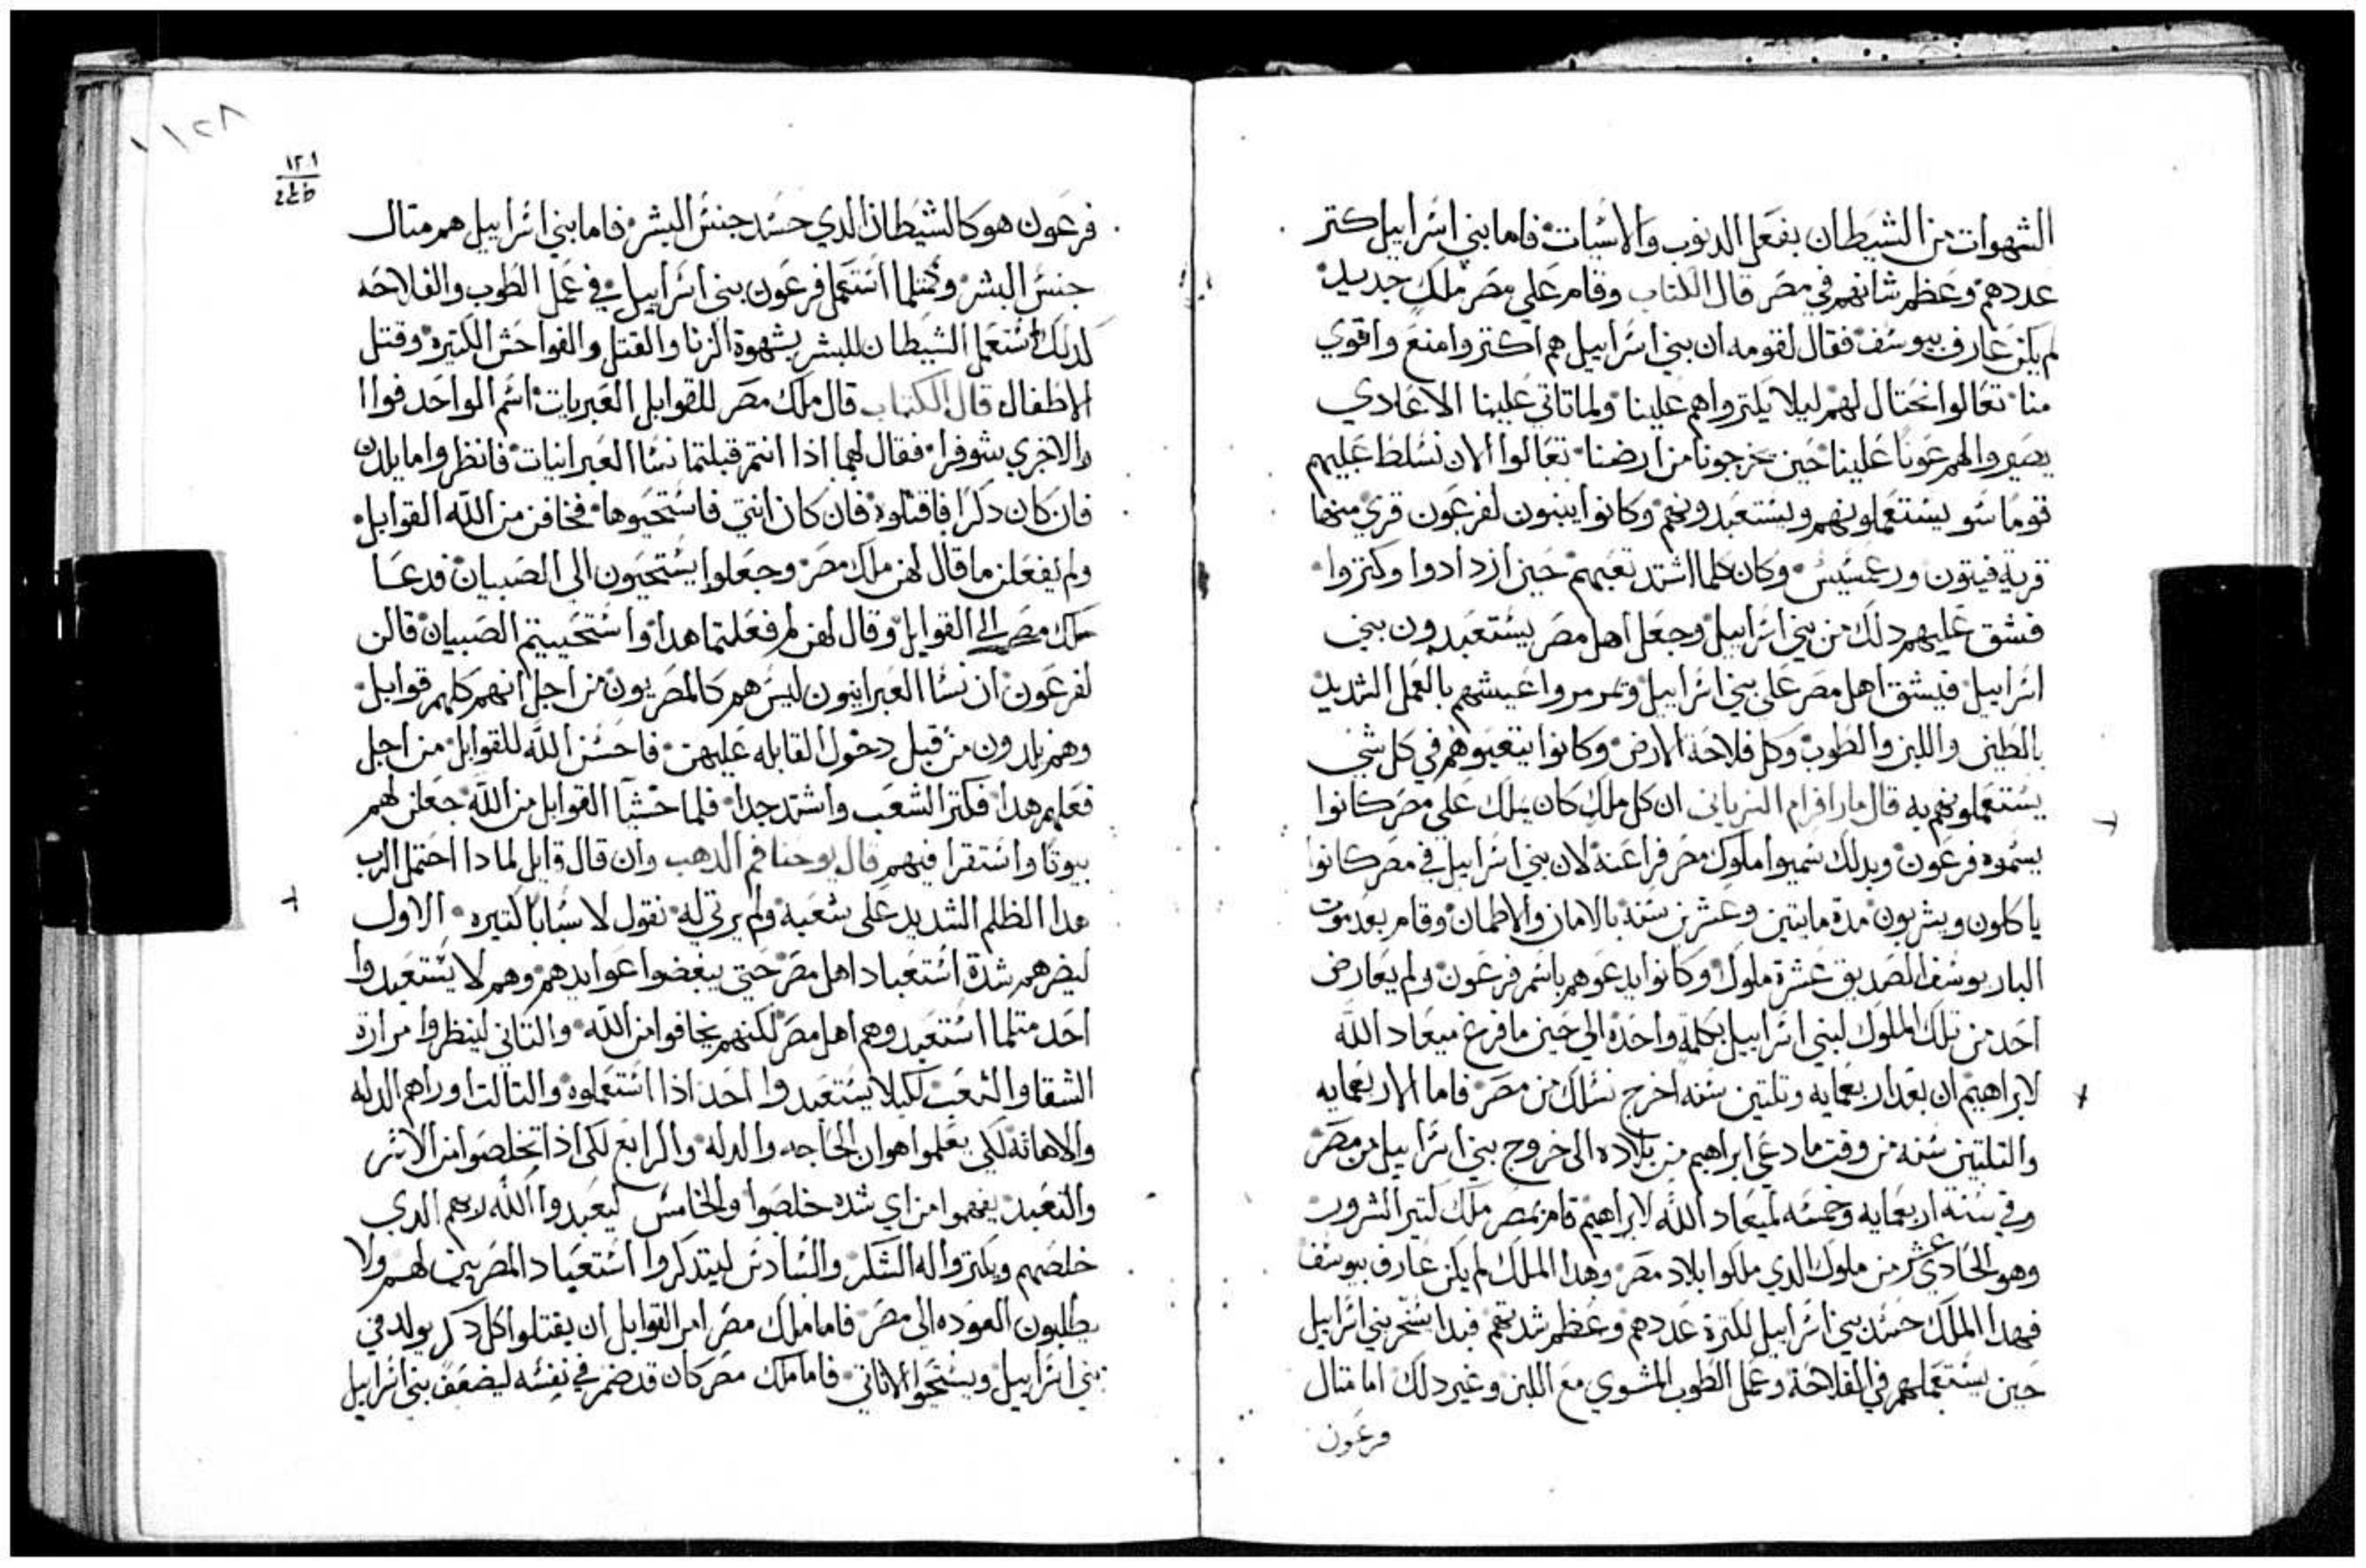 الشهوات من الشيطان بفعل الدنوب والاسيات فاما بني اسراييل كتر
عددهم وعظم شانهم في مصر قال الكتاب وقام علي مصر ملك جديد
لم يكن عارف بيوسف فقال لقومه ان بني اسراييل هم اكتر وامنع واقوي
منا تعالوا نحتال لهم ليلا يكتروا هم علينا ولما تاتي علينا الاعادي
يصيروا لهم عونا علينا حين يخرجونا من ارضنا تعالوا الان نسلط عليهم
قوما سو يستعملونهم ويستعبدونهم وكانوا يبنون لفرعون قري منها
قرية فيتون ورعمسيس وكان كلما اشتد تعبهم حين ازدادوا وكتروا
فشق عليهم دلك من بني اسراييل وجعل اهل مصر يستعبدون بني
اسراييل فيشق اهل مصر علي بني اسراييل وتمرمروا عيشهم بالعمل الشديد
بالطين واللبن والطوب وكل فلاحة الارض وكانوا يتعبوهم في كل شي
يستعملونهم به قال مار افرام السرياني ان كل ملك كان يملك علي مصر كانوا
يسموه فرعون وبدلك سميوا ملوك مصر فراعنة لان بني اسراييل في مصر كانوا
ياكلون ويشربون مدة مايتين وعشرين سنة بالامان والاطمان وقام بعد موت
البار يوسف الصديق عشرة ملوك وكانوا يدعوهم باسم فرعون ولم يعارض
احد من تلك الملوك لبني اسراييل بكلمة واحدة الي حين ما فرغ ميعاد الله
لابراهيم ان بعد اربعمايه وتلتين سنه اخرج نسلك من مصر فاما الاربعمايه
والتلتين سنه من وقت ما دعي ابراهيم من بلاده الى خروج بني اسراييل من مصر
وفي سنة اربعمايه وخمسه لميعاد الله لابراهيم قام بمصر ملك كتير الشرور
وهو الحادي عشر من ملوك الدي ملكوا بلاد مصر وهدا الملك لم يكن عارف بيوسف
فهدا الملك حسد بني اسراييل لكترة عددهم وعظم شدتهم فبدا يسخر بني اسراييل
حين يستعملهم في الفلاحة وعمل الطوب المشوي مع اللبن وغير دلك اما متال
فرعون
١٢١
فرعون هو كالشيطان الدي حسد جنس البشر فاما بني اسراييل هم متال
جنس البشر وكمتلما استعمل فرعون بني اسراييل في عمل الطوب والفلاحه
كدلك استعمل الشيطان للبشر بشهوة الزنا والقتل والفواحش الكتيرة وقتل
الاطفال قال الكتاب قال ملك مصر للقوابل العبريات اسم الواحد فواا
والاخري شوفرا فقال لهما ادا انتم قبلتما نسا العبرانيات فانظروا ما يلدن
فان كان دكرا فاقتلوه فان كان انتي فاستحيوها فخافن من الله القوابل
ولم يفعلن ما قال لهن ملك مصر وجعلوا يستحيون الى الصبيان فدعا
ملك مصر الي القوابل وقال لهن لم فعلتما هدا واستحييتم الصبيان قالن
لفرعون ان نسا العبرانيون ليس هم كالمصريون من اجل انهم كلهم قوابل
وهنم يلدون من قبل دخول القابله عليهن فاحسن الله للقوابل من اجل
فعلهم هدا فكتر الشعب واشتد جدا فلما خشيا القوابل من الله جعلن لهم
بيوتا واستقرا فيهم قال يوحنا فم الدهب وان قال قايل لمادا احتمل الرب
هدا الظلم الشديد علي شعبه ولم يرتي له نقول لاسبابا كتيره الاول
ليضرهم شدة استعباد اهل مصر حتي يبغضوا عوايدهم وهم لا يستعبدوا
احد متلما استعبدوهم اهل مصر لكنهم يخافوا من الله والتاني لينظروا مرارة
الشقا والتعب لكيلا يستعبدوا احد ادا استعملوه والتالت اوراهم الدله
والاهانه لكي يعلموا هوان الحاجه والدله والرابع لكي ادا تخلصوا من الاسر
والتعبد يفهموا من اي شده خلصوا والخامس ليعبدوا الله ربهم الدي
خلصهم ويكتروا له الشكر والسادس ليتدكروا استعباد المصريين لهم ولا
يطلبون العوده الى مصر فاما ملك مصر امر القوابل ان يقتلوا كل دكر يولد في
بني اسراييل ويستحيوا الاناتي فاما ملك مصر كان قد ضمر في نفسه ليضعف بني اسراييل